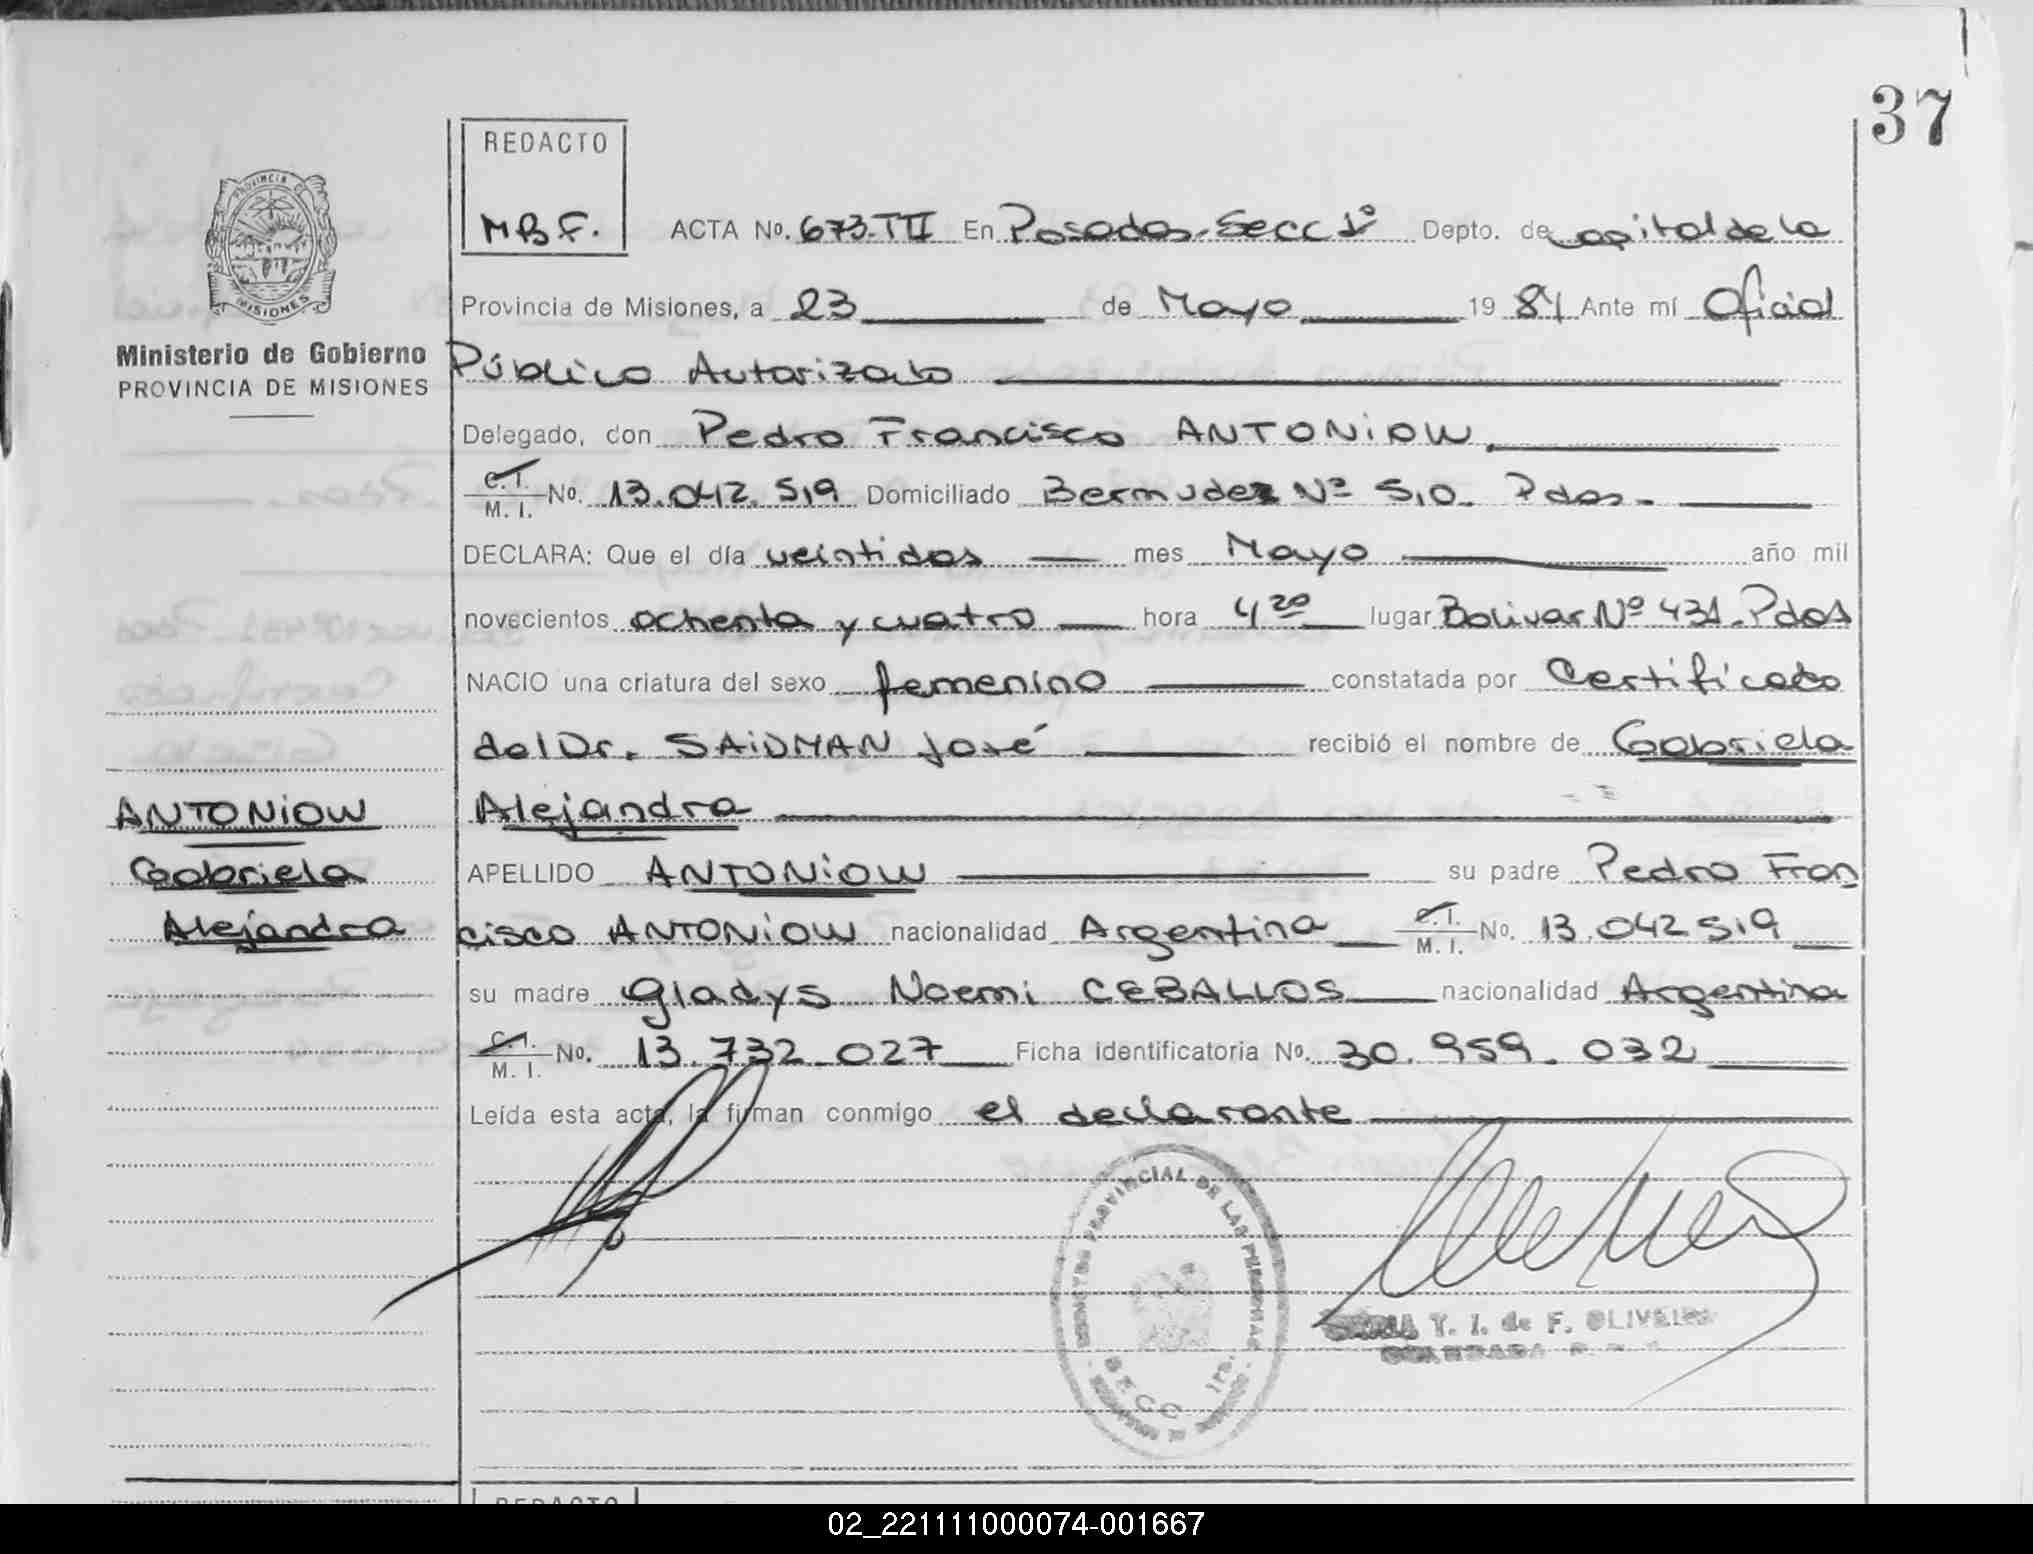 37
REDACTO
M.B.F.
ACTA No. 673.TII En Posadas. Secc 1º Depto. de Capital de la
PROVINCIA DE MISIONES
Ministerio de Gobierno
PROVINCIA DE MISIONES
Provincia de Misiones, a 23 de Mayo 1984 Ante mí Oficial
Público Autorizado
Delegado, don Pedro Francisco ANTONiOW.
C.I. M. I. No. 13.042.519 Domiciliado Bermudez Nº 510. Pdas.
DECLARA: Que el día veintidos mes Mayo año mil
novecientos ochenta y cuatro hora 4 20 lugar Bolivar Nº 431. Pdas
NACIO una criatura del sexo femenino constatada por Certificado
del Dr. SAiDMAN José recibió el nombre de Gabriela
Alejandra
ANTONiOW
Gabriela
Alejandra
APELLIDO ANTONiOW su padre Pedro Fran
cisco ANTONiOW nacionalidad Argentina C.I. M. I. No. 13.042 519
su madre Gladys Noemi CEBALLOS nacionalidad Argentina
C.I. M. I. No. 13.732.027 Ficha identificatoria No. 30.959.032
Leída esta acta, la firman conmigo el declarante
PROVINCIAL DE LAS PERSONAS
SECC 1ra.
Y. I. de F. OLIVEIRA
REDACTO
02_221111000074-001667